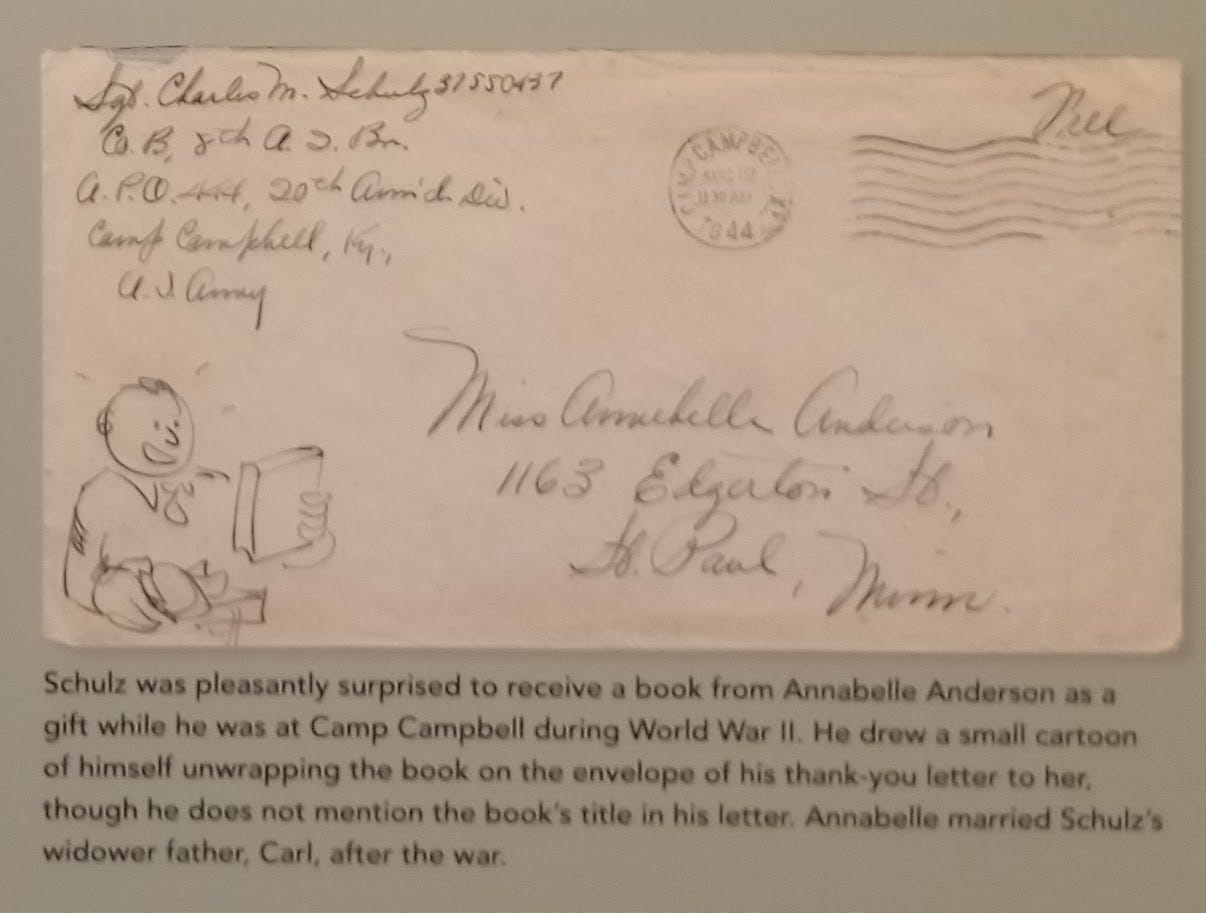 Sgt. Charles M. Schulz 37550437
Co. B, 8th A. I. Bn.
A.P.O. 444, 20th Arm'd. Div.
Camp Campbell, Ky.,
U.S. Army
Free
CAMP CAMPBELL, KY.
AUG 12
11 30 AM
1944
Miss Annabelle Anderson
1163 Edgerton St.,
St. Paul, Minn.
Schulz was pleasantly surprised to receive a book from Annabelle Anderson as a
gift while he was at Camp Campbell during World War II. He drew a small cartoon
of himself unwrapping the book on the envelope of his thank-you letter to her,
though he does not mention the book's title in his letter. Annabelle married Schulz's
widower father, Carl, after the war.